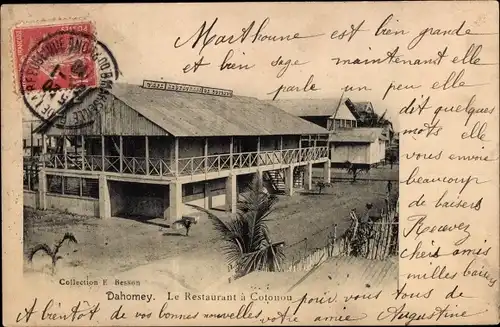 Marthoune est bien grande
et bien sage maintenant elle
parle un peu elle
dit quelques
mots elle
vous envoie
beaucoup
de baisers
Recevez
chers amis
milles baisers
pour vous tous de
Augustine
A bientôt de vos bonnes nouvelles votre amie
Collection E. Besson
Dahomey. Le Restaurant à Cotonou